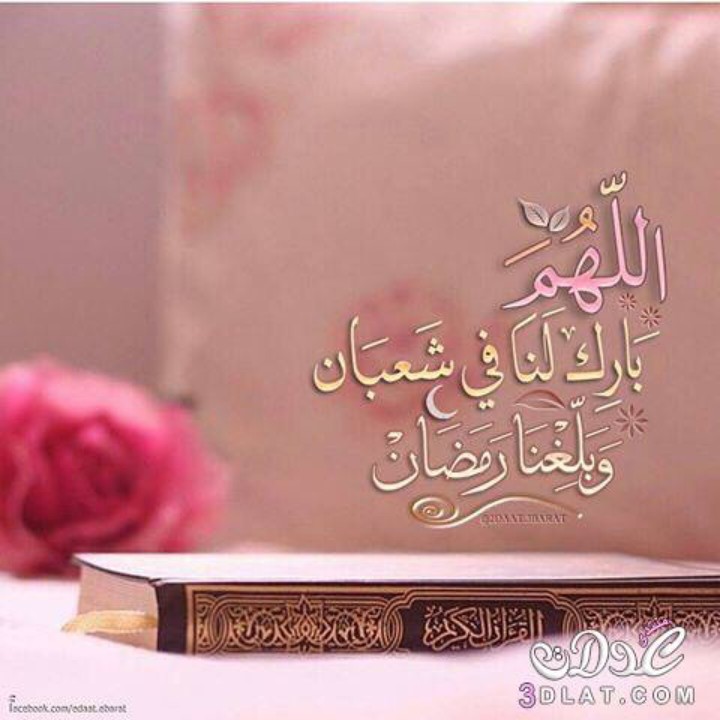 اللَّهُمَّ
بَارِكْ لَنَا فِي شَعبَان
وَبَلِّغْنَا رَمَضَانْ
@2DAAT.3BARAT
القرآن الكريم
منتدى عدلات
3DLAT.COM
facebook.com/edaat.ebarat